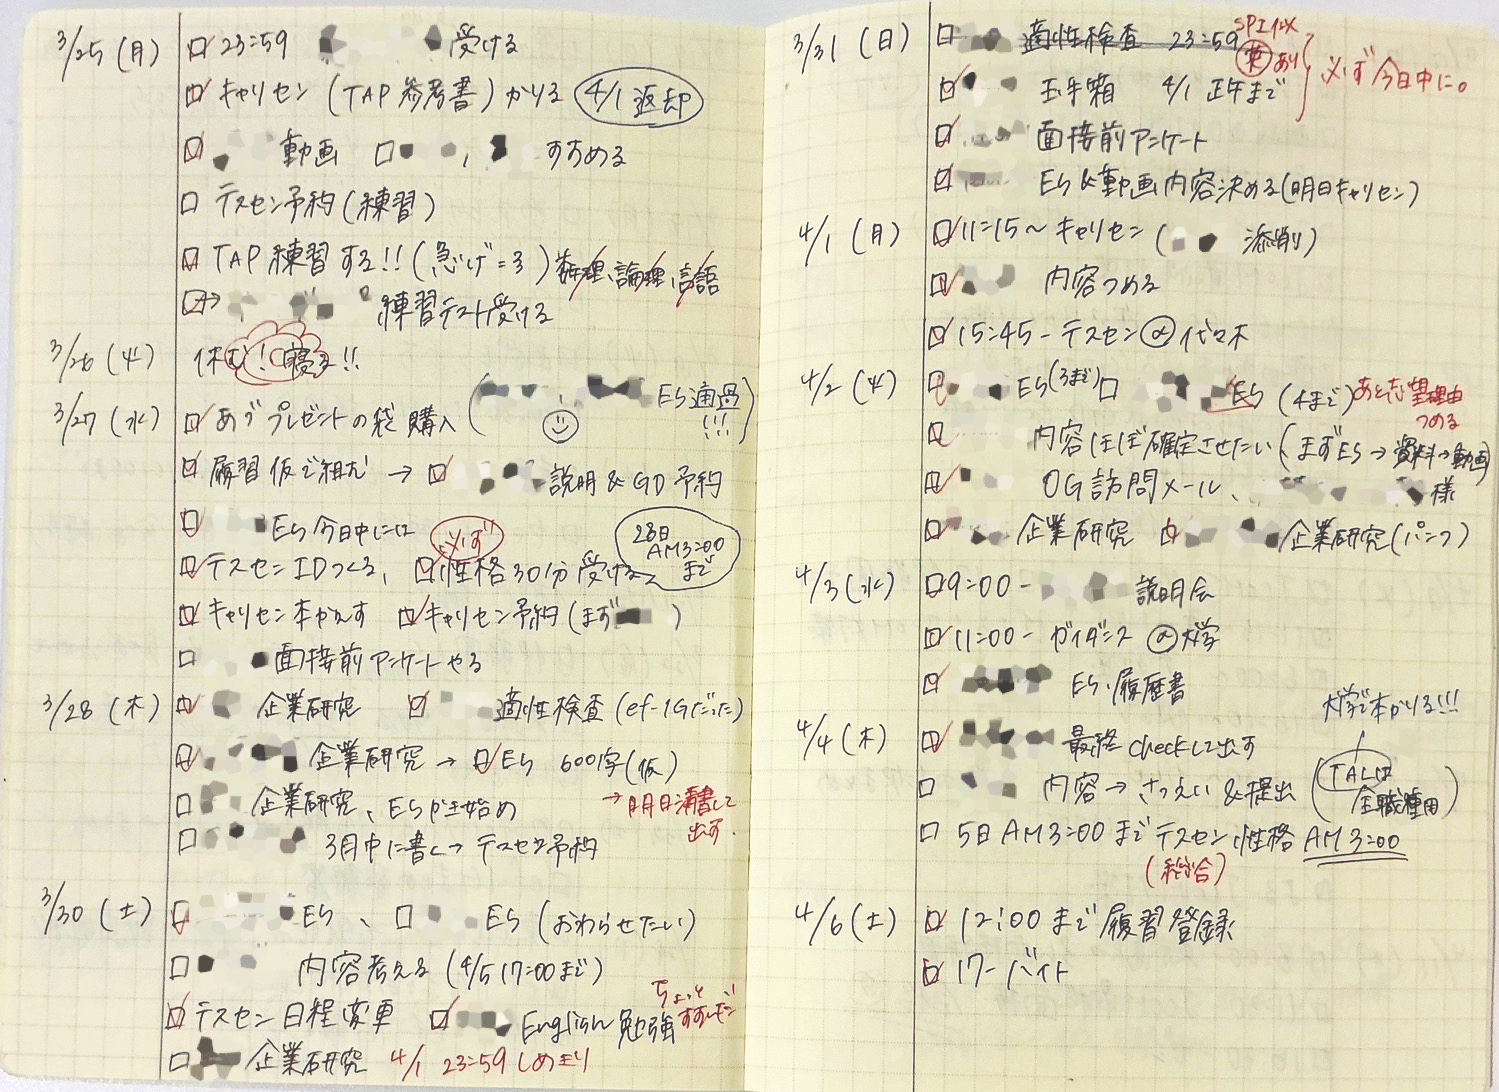 3/25 (月) 23:59 受ける
キャリセン (TAP 参考書) かりる 4/1 返却
動画 、 すすめる
テスセン予約 (練習)
TAP 練習する!! (急げ=3) 数理、論理、言語
→ 練習テスト受ける
3/26 (火) 休む!寝る!!
3/27 (水) プレゼントの袋 購入 ( ES通過!!! )
履習 仮で組む → 説明 & GD 予約
ES 今日中には 必ず
テスセン IDつくる、性格30分 受ける 28日 AM3:00 まで
キャリセン 本かえす キャリセン予約 (まず )
面接前アンケートやる
3/28 (木) 企業研究 適性検査 (ef-1Gだった)
企業研究 → ES 600字(仮)
→ 明日清書して出す.
企業研究、ESかき始め
3月中に書く→ テスセン予約
3/30 (土) ES 、 ES (おわらせたい)
内容考える (4/5 17:00まで)
テスセン 日程変更 English 勉強 ちょっとすすんだ!
企業研究 4/1 23:59 しめきり
3/31 (日) 適性検査 23:59 SPI 英あり
玉手箱 4/1 正午まで 必ず今日中に。
面接前アンケート
ES & 動画 内容決める (明日キャリセン)
4/1 (月) 11:15〜 キャリセン ( 添削)
内容つめる
15:45 - テスセン @ 代々木
4/2 (火) ES (3まで) ES (4まで) あと志望理由つめる
内容 ほぼ確定させたい (まずES → 資料→動画)
OG訪問メール、 様
企業研究 企業研究 (パンフ)
4/3 (水) 9:00 - 説明会
11:00 - ガイダンス @ 大学
ES、履歴書
4/4 (木) 最終 checkして出す
大学で本かりる!!!
内容 → さつえい & 提出 (TALは全職種用)
5日 AM3:00 まで テスセン 性格 AM3:00
(総合)
4/6 (土) 12:00 まで 履習登録
17- バイト